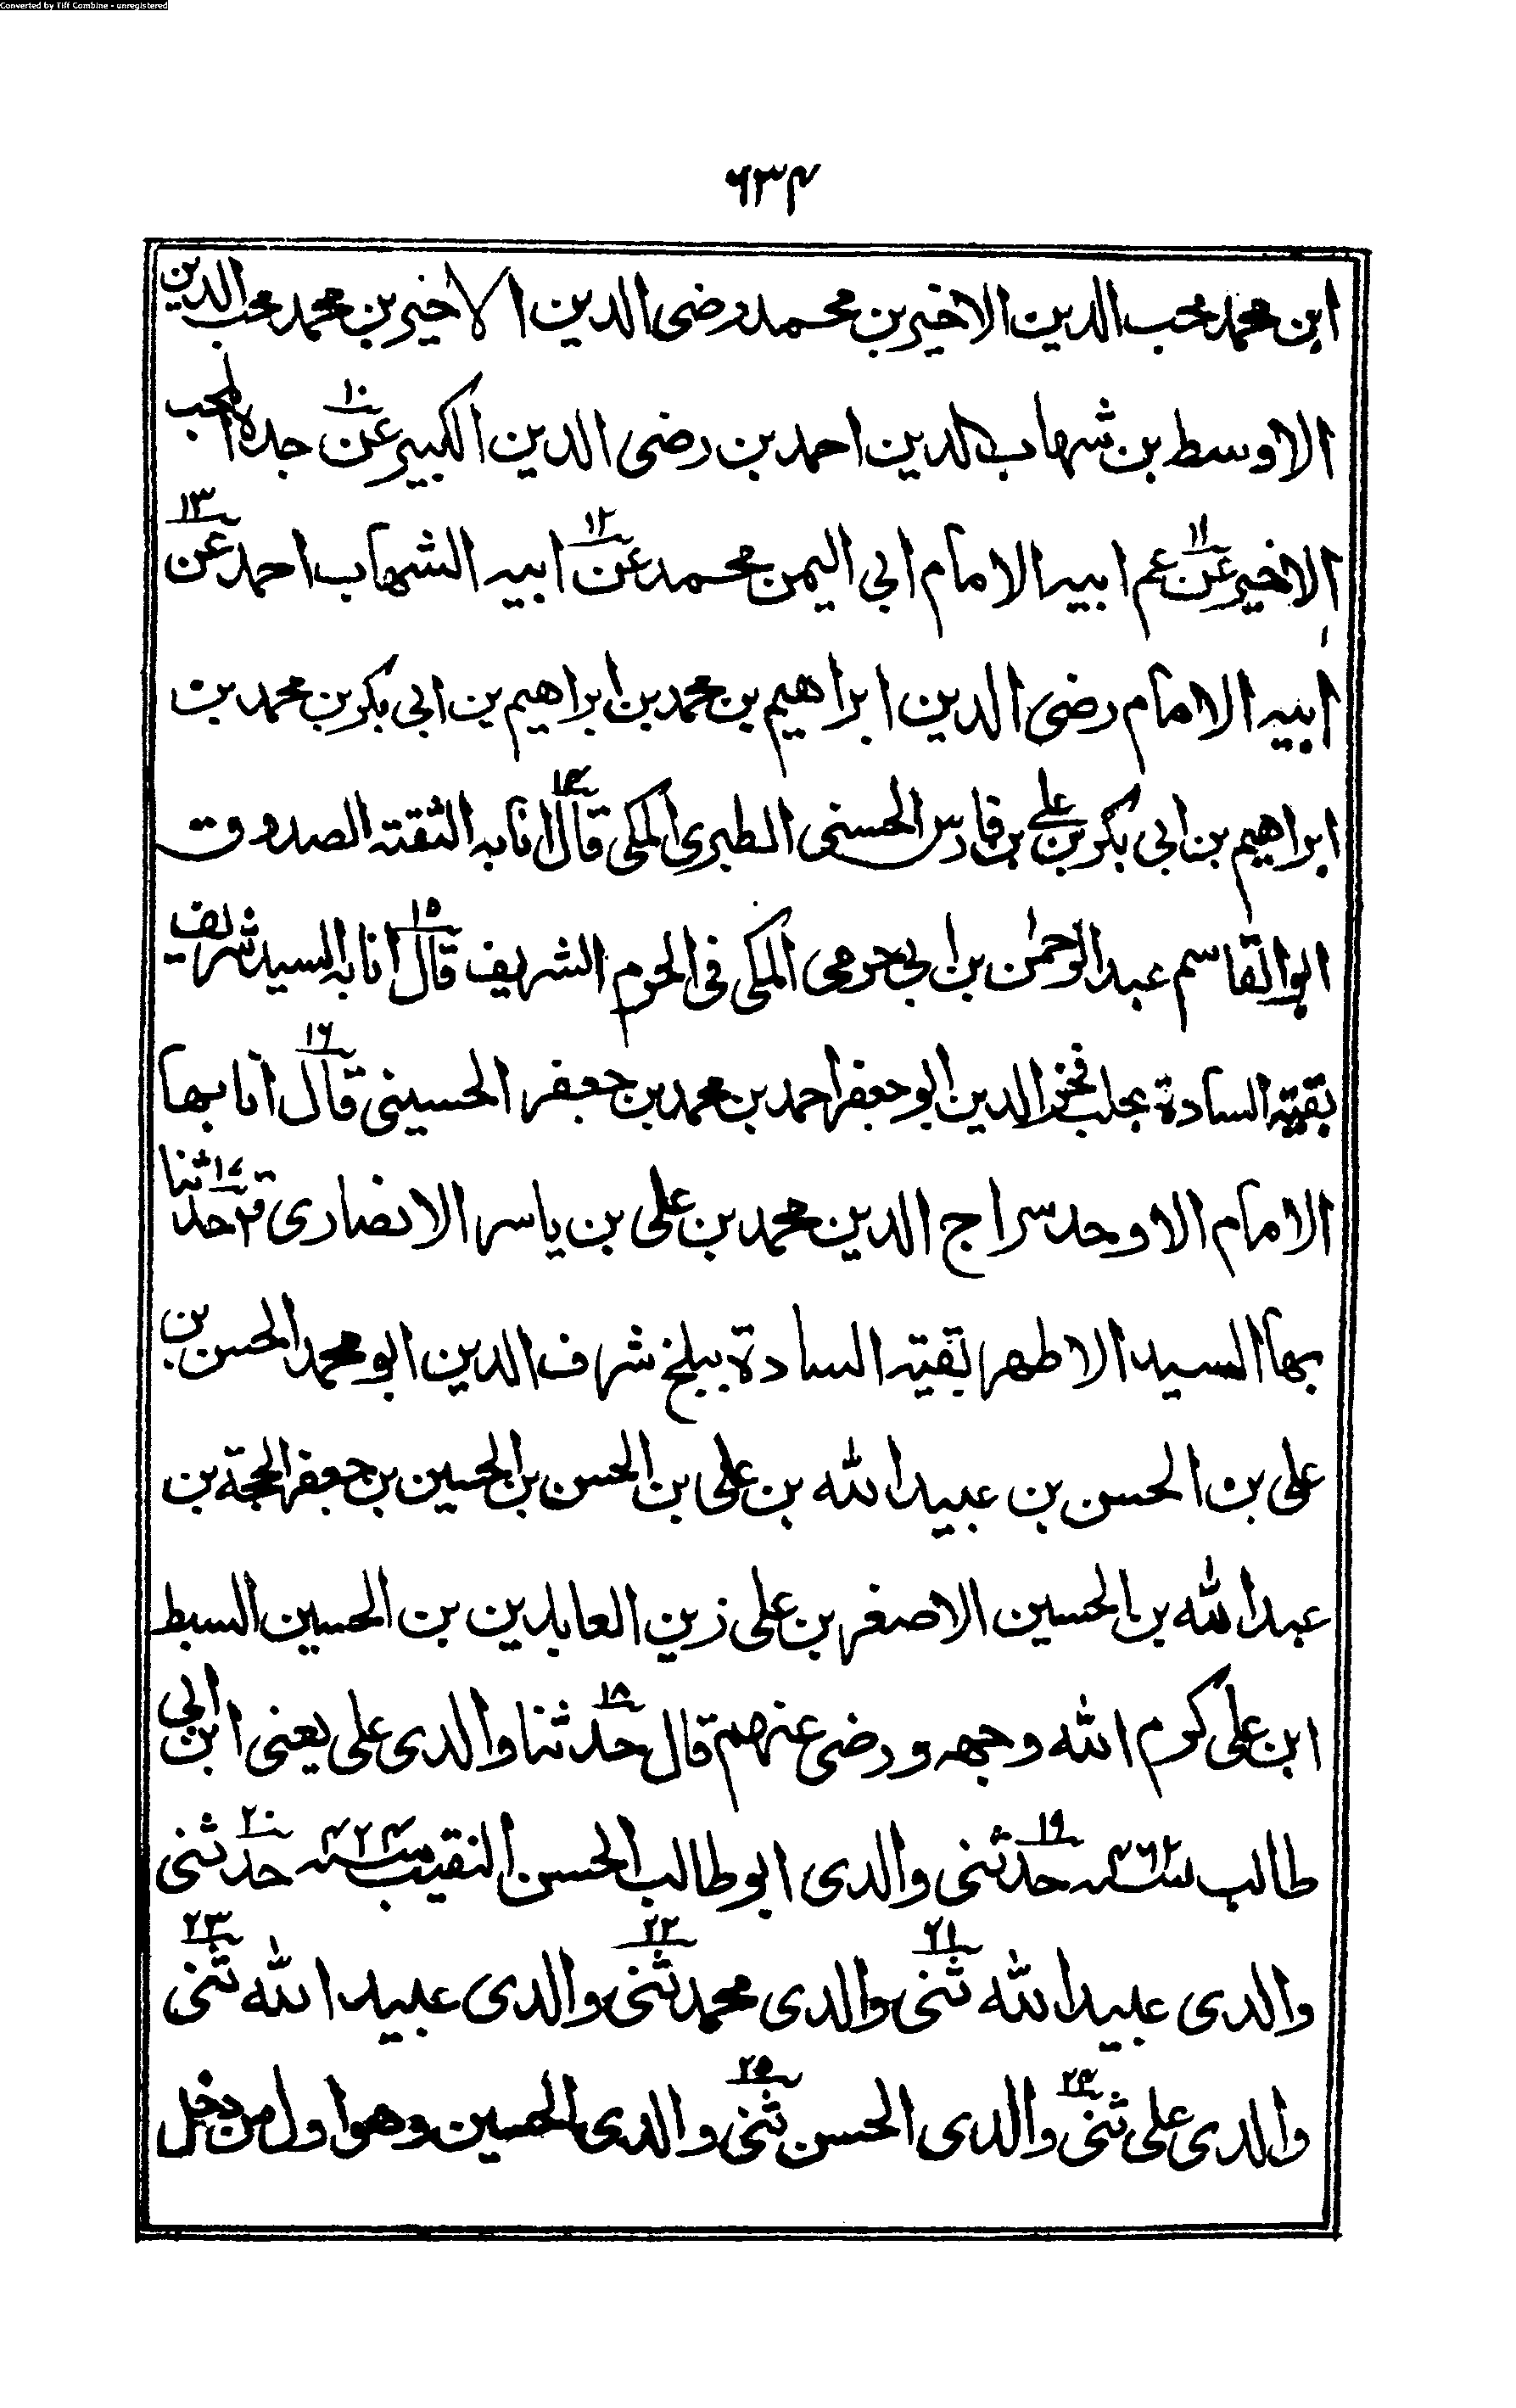 Converted by Tiff Combine - unregistered
۶۳۴
ابن محمد محب الدین الاخیر بن محمد رضی الدین الاخیر بن محمد محب الدین
الاوسط بن شهاب الدین احمد بن رضی الدین الکبیر عن۱۰ جده المحب
الاخیر عن۱۱ عم ابیه الامام ابی الیمن محمد عن۱۲ ابیه الشهاب احمد عن۱۳
ابیه الامام رضی الدین ابراهیم بن محمد بن ابراهیم بن ابی بکر بن محمد بن
ابراهیم بن ابی بکر بن علی بن فارس الحسنی الطبری المکی قال۱۴ انا به الثقة الصدوق
ابو القاسم عبد الرحمٰن بن ابی حرمی المکی فی الحرم الشریف قال۱۵ انا به السید شریف
بقیة السادة بحلب فخر الدین ابو جعفر احمد بن محمد بن جعفر الحسینی قال۱۶ انا بها
الامام الاوحد سراج الدین محمد بن علی بن یاسر الانصاری حدثنا۱۷
بها السید الاطهر بقیة السادة ببلخ شرف الدین ابو محمد الحسن بن
علی بن الحسن بن عبید الله بن علی بن الحسن بن الحسین بن جعفر الحجة بن
عبد الله بن الحسین الاصغر بن علی زین العابدین بن الحسین السبط
ابن علی کرم الله وجهه و رضی عنهم قال حدثنا۱۸ والدی علی یعنی ابن ابی
طالب سنه ۴۶۲ حدثنی۱۹ والدی ابو طالب الحسن النقیب سنه ۴۲۴ حدثنی۲۰
والدی عبید الله ثنی۲۱ والدی محمد ثنی۲۲ والدی عبید الله ثنی۲۳
والدی علی ثنی۲۴ والدی الحسن ثنی۲۵ والدی الحسین وهو اول من دخل